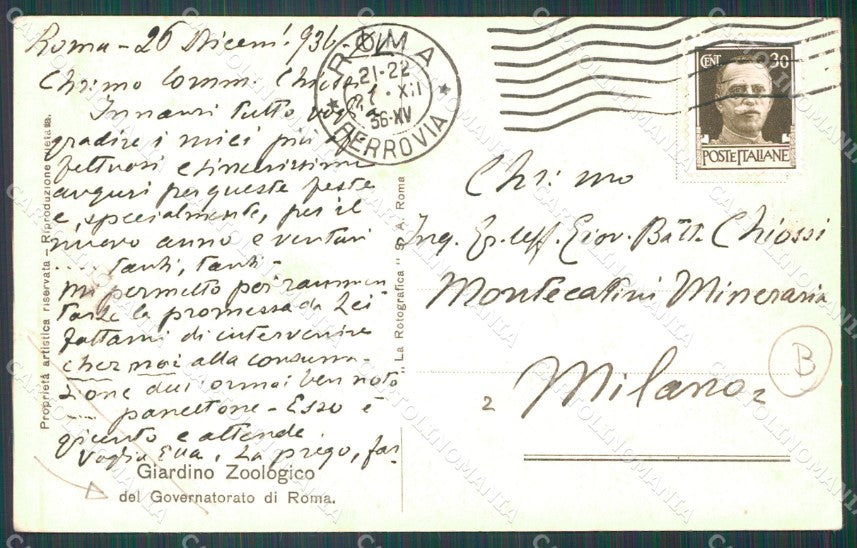 Roma - 26 Dicem. 936-XV
Chr:mo Comm. Chiossi
Innanzi tutto voglia
gradire i miei più af-
fettuosi e sincerissimi
auguri per queste feste
e, specialmente, per il
nuovo anno e venturi
.... tanti, tanti -
Mi permetto poi rammen
tarle la promessa da Lei
fattami di intervenire
chez moi alla consuma-
zione dell'ormai ben noto
.... panettone - Esso è
giunto e attende
Voglia Ella, La prego, far-
Giardino Zoologico
del Governatorato di Roma.
Proprietà artistica riservata - Riproduzione vietata.
"La Rotografica" S. A. Roma
ROMA
21-22
XII
36-XV
FERROVIA
CENT. 30
POSTE ITALIANE
Chr:mo
Ing. Gr. Uff. Giov. Batt. Chiossi
Montecatini Mineraria
Milano
2
B
CARTOLINOMANIA